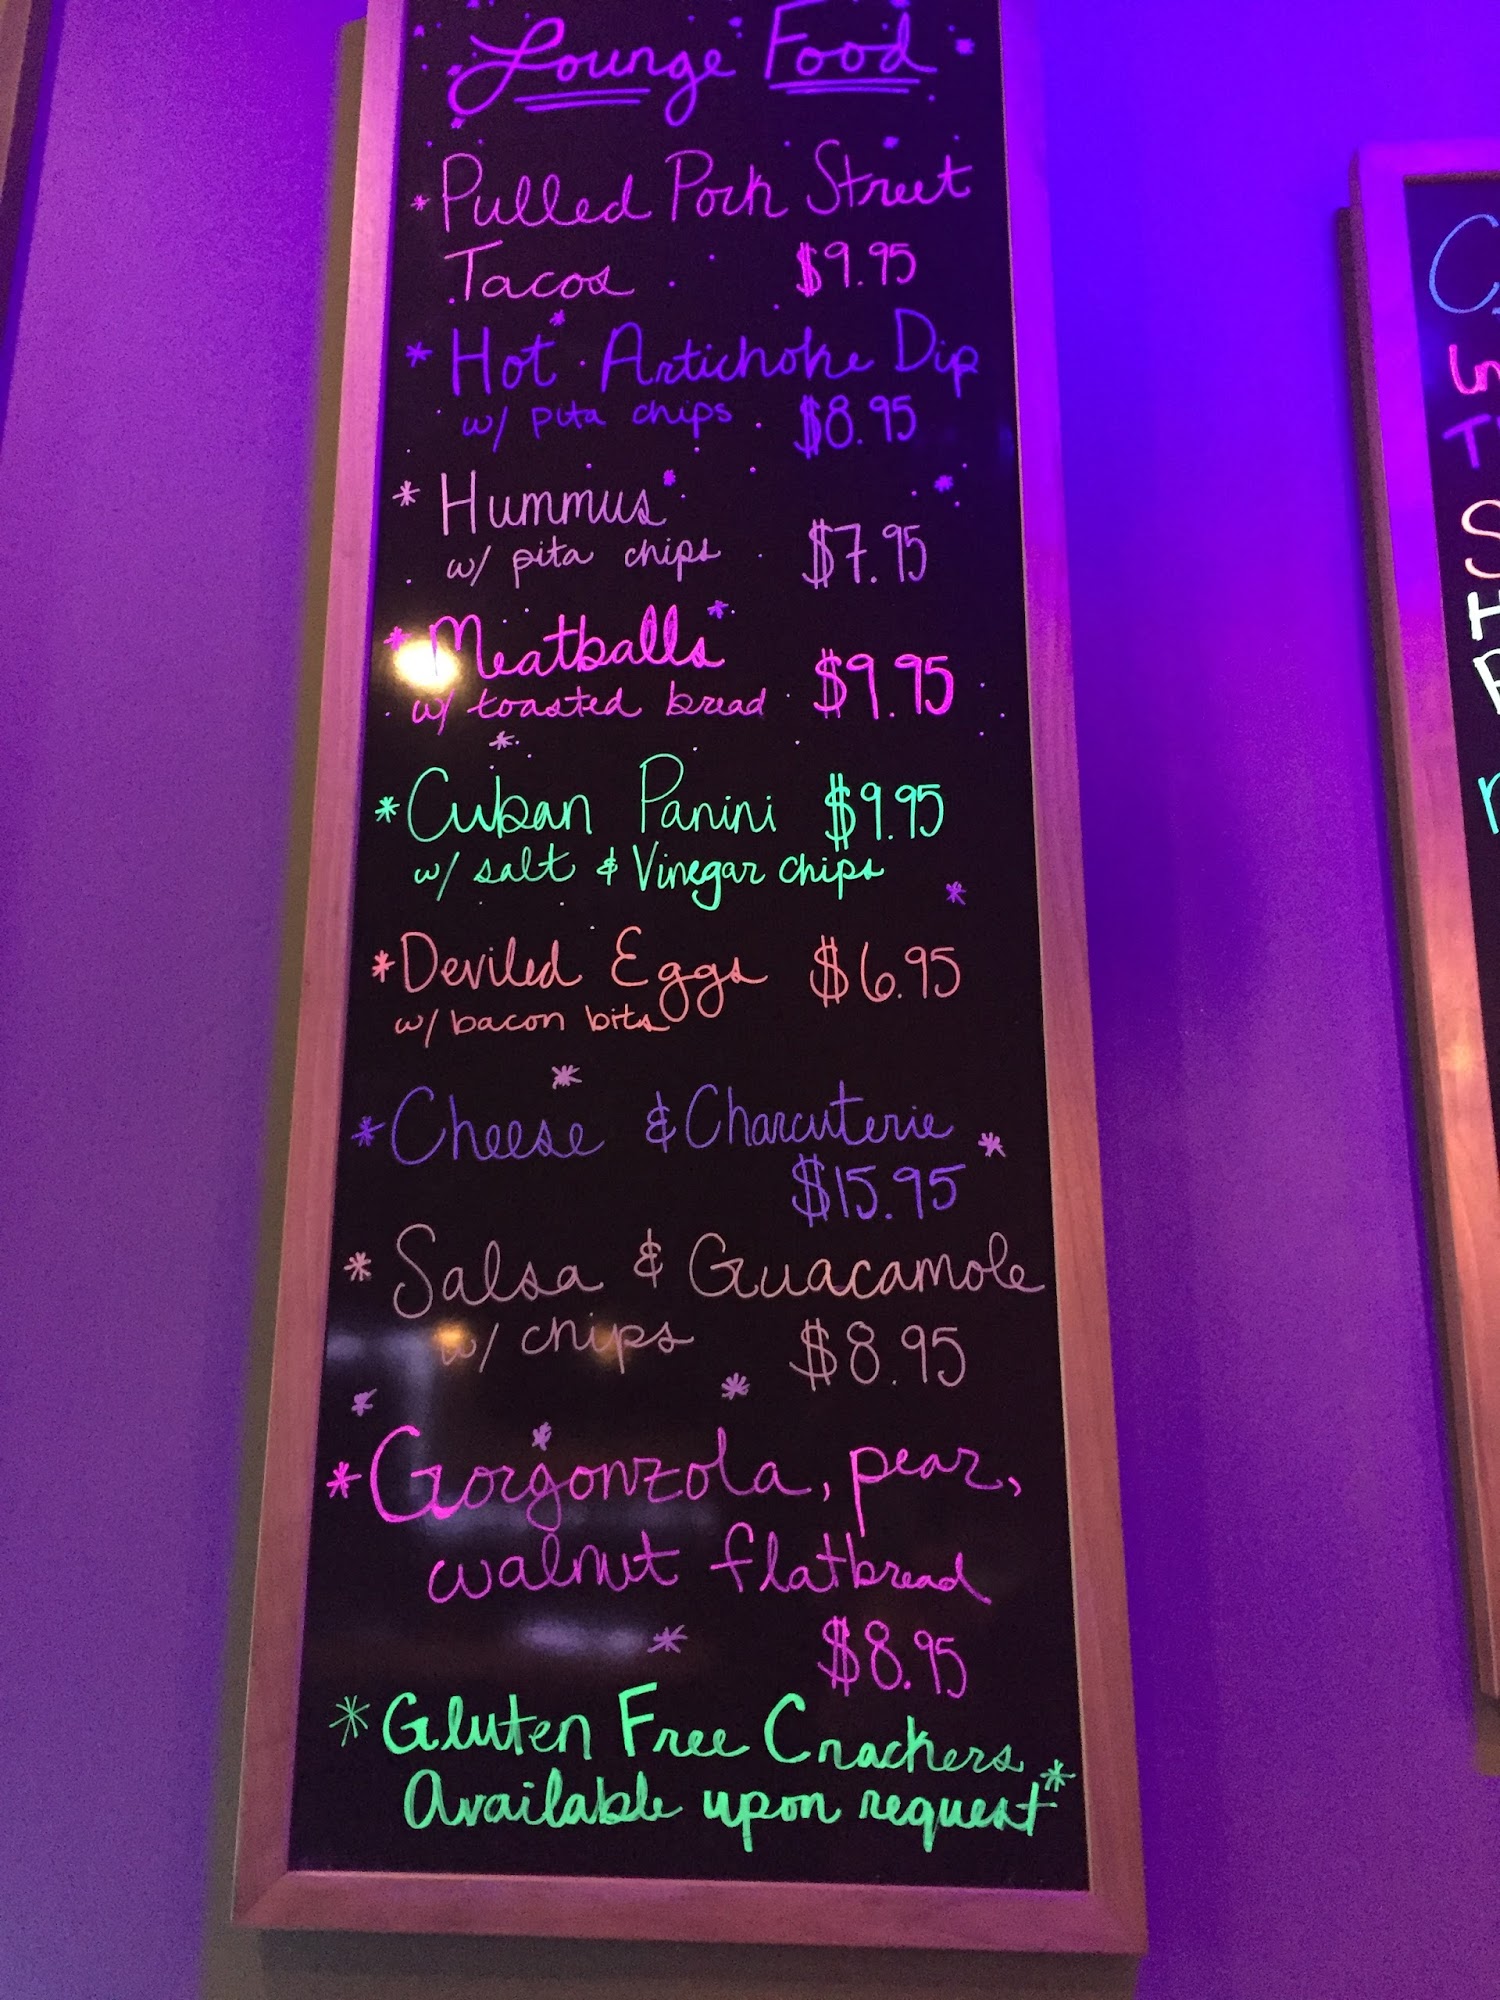 Lounge Food
* Pulled Pork Street
Tacos $9.95
* Hot Artichoke Dip
w/ pita chips $8.95
* Hummus
w/ pita chips $7.95
* Meatballs
w/ toasted bread $9.95
* Cuban Panini $9.95
w/ salt & Vinegar chips
* Deviled Eggs $6.95
w/ bacon bits
* Cheese & Charcuterie
$15.95
* Salsa & Guacamole
w/ chips $8.95
* Gorgonzola, pear,
walnut flatbread
$8.95
* Gluten Free Crackers
Available upon request *